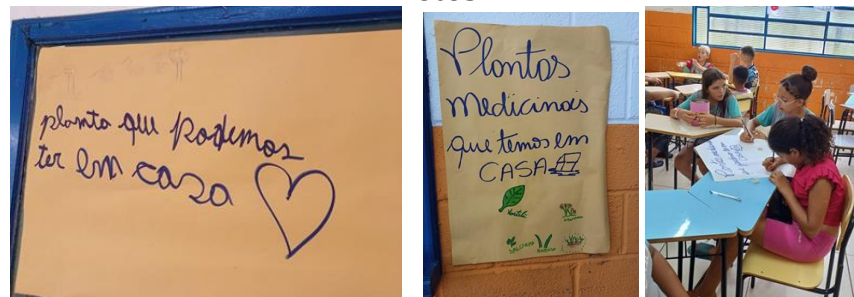 planta que podemos
ter em casa
Plantas
Medicinais
que temos em
CASA
Hortelã